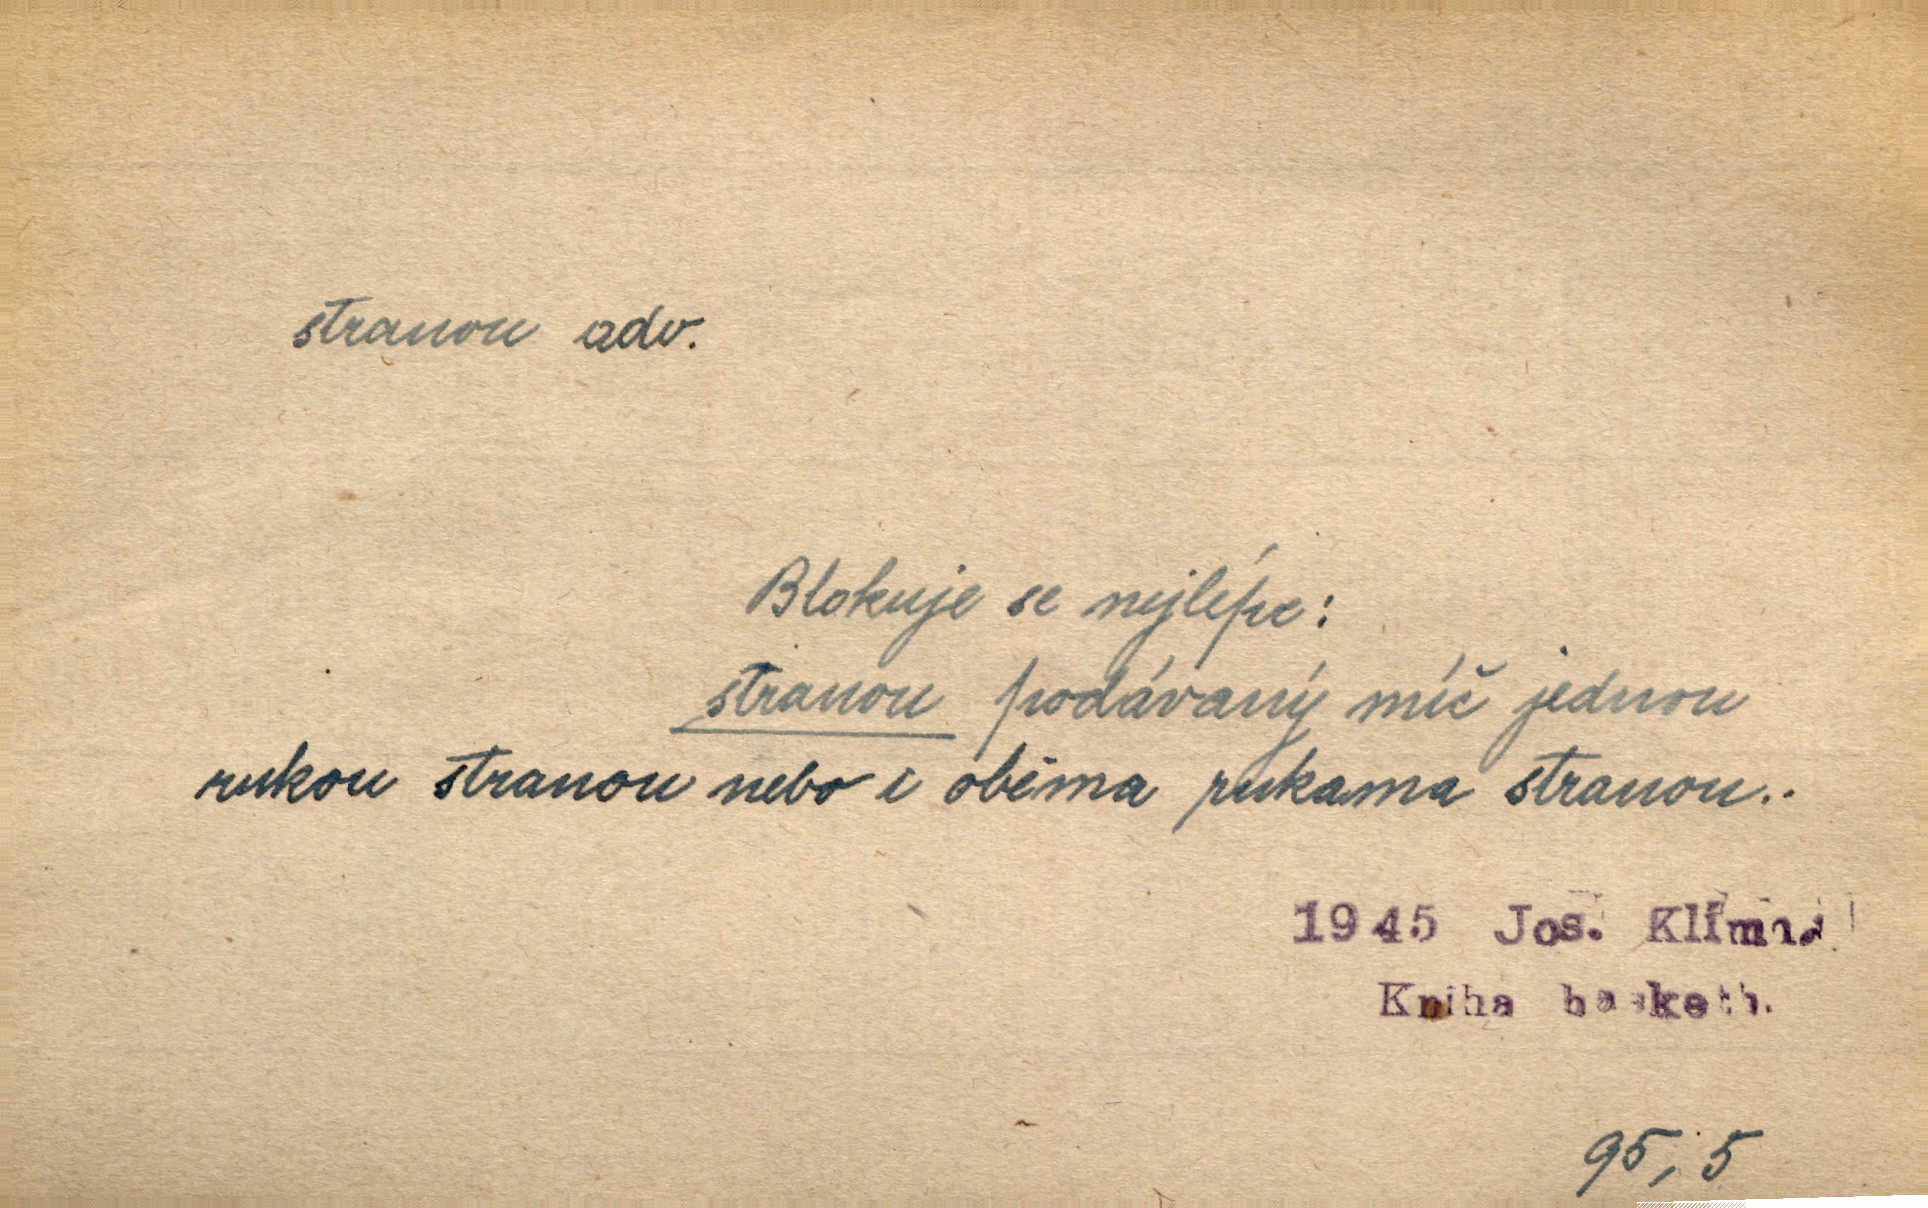 stranou adv.
Blokuje se nejlépe:
stranou podávaný míč jednou
rukou stranou nebo i oběma rukama stranou..
1945 Jos. Klíma
Kniha basketb.
95, 5